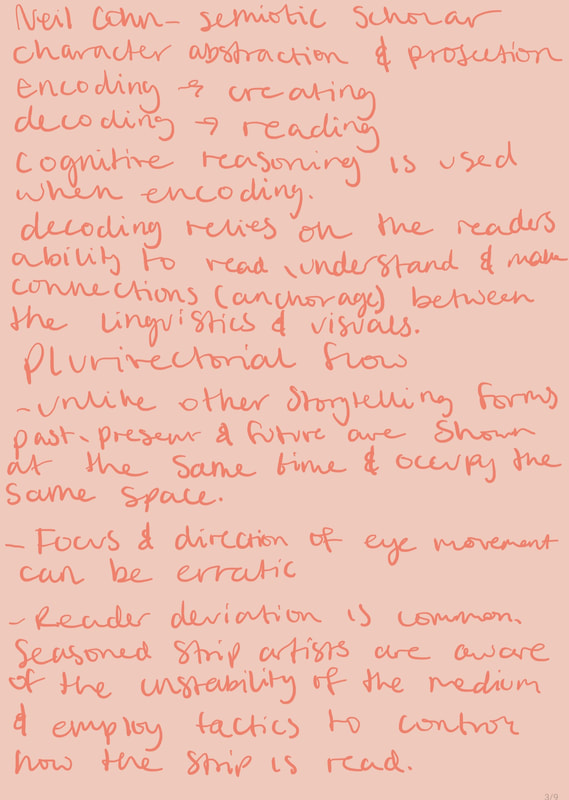 Neil Cohn - semiotic scholar
character abstraction & projection
encoding → creating
decoding → reading
cognitive reasoning is used
when encoding.
decoding relies on the readers
ability to read, understand & make
connections (anchorage) between
the linguistics & visuals.
Plurivectorial flow
- unlike other storytelling forms
past, present & future are shown
at the same time & occupy the
same space.
- Focus & direction of eye movement
can be erratic
- Reader deviation is common.
Seasoned strip artists are aware
of the instability of the medium
& employ tactics to control
how the strip is read.
3/9